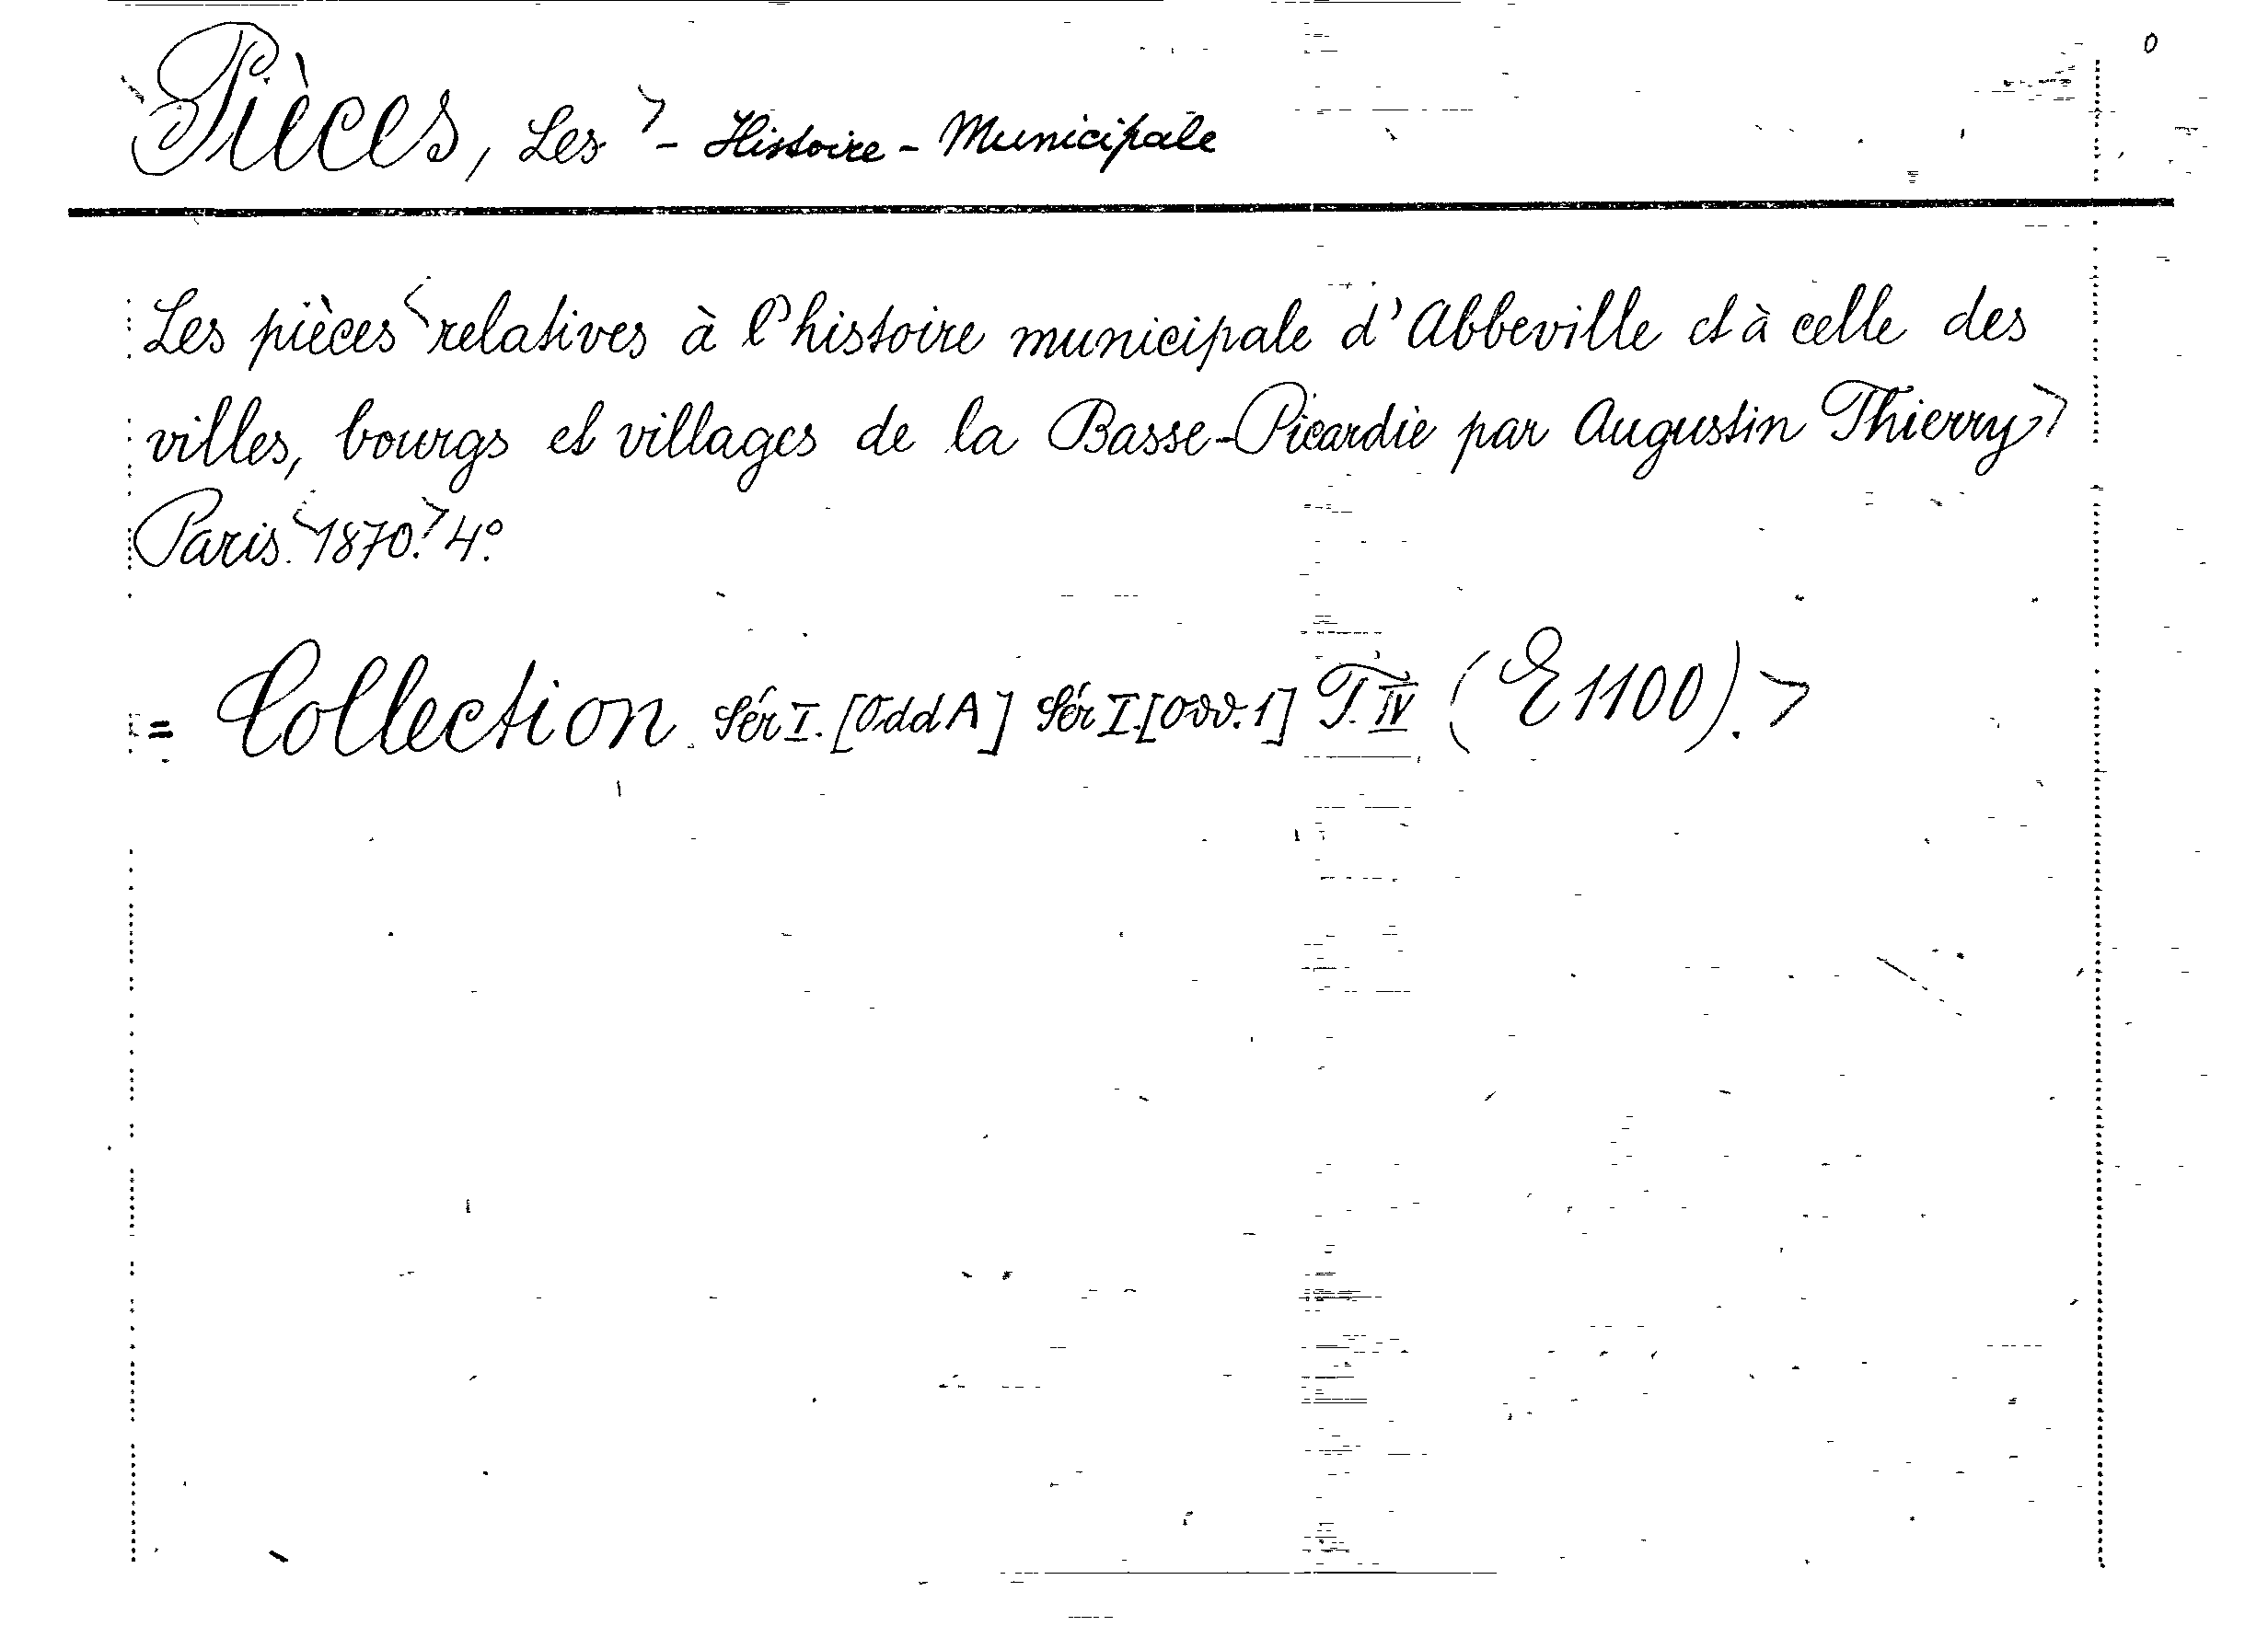 0
Pièces, Les > - Histoire - Municipale
Les pièces < relatives à l'histoire municipale d'Abbeville et à celle des
villes, bourgs et villages de la Basse-Picardie par Augustin Thierry >
Paris. < 1870. > 4°.
= Collection. Sér I. [O.ddA] Sér I. [Odd.1] T. IV (E 1100). >